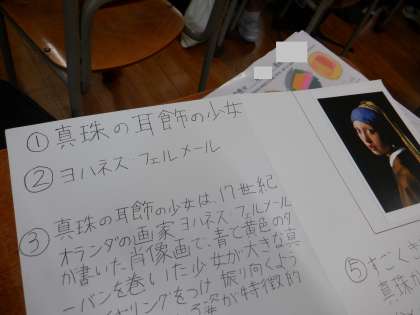 ① 真珠の耳飾の少女
② ヨハネス フェルメール
③ 真珠の耳飾の少女は、17世紀
オランダの画家ヨハネス フェルメール
が書いた肖像画で、青て黄色のタ
ーバンを巻いた少女が大きな真
イヤリングをつけ 振り向くよう
姿が特徴的
⑤ すごくき
真珠の